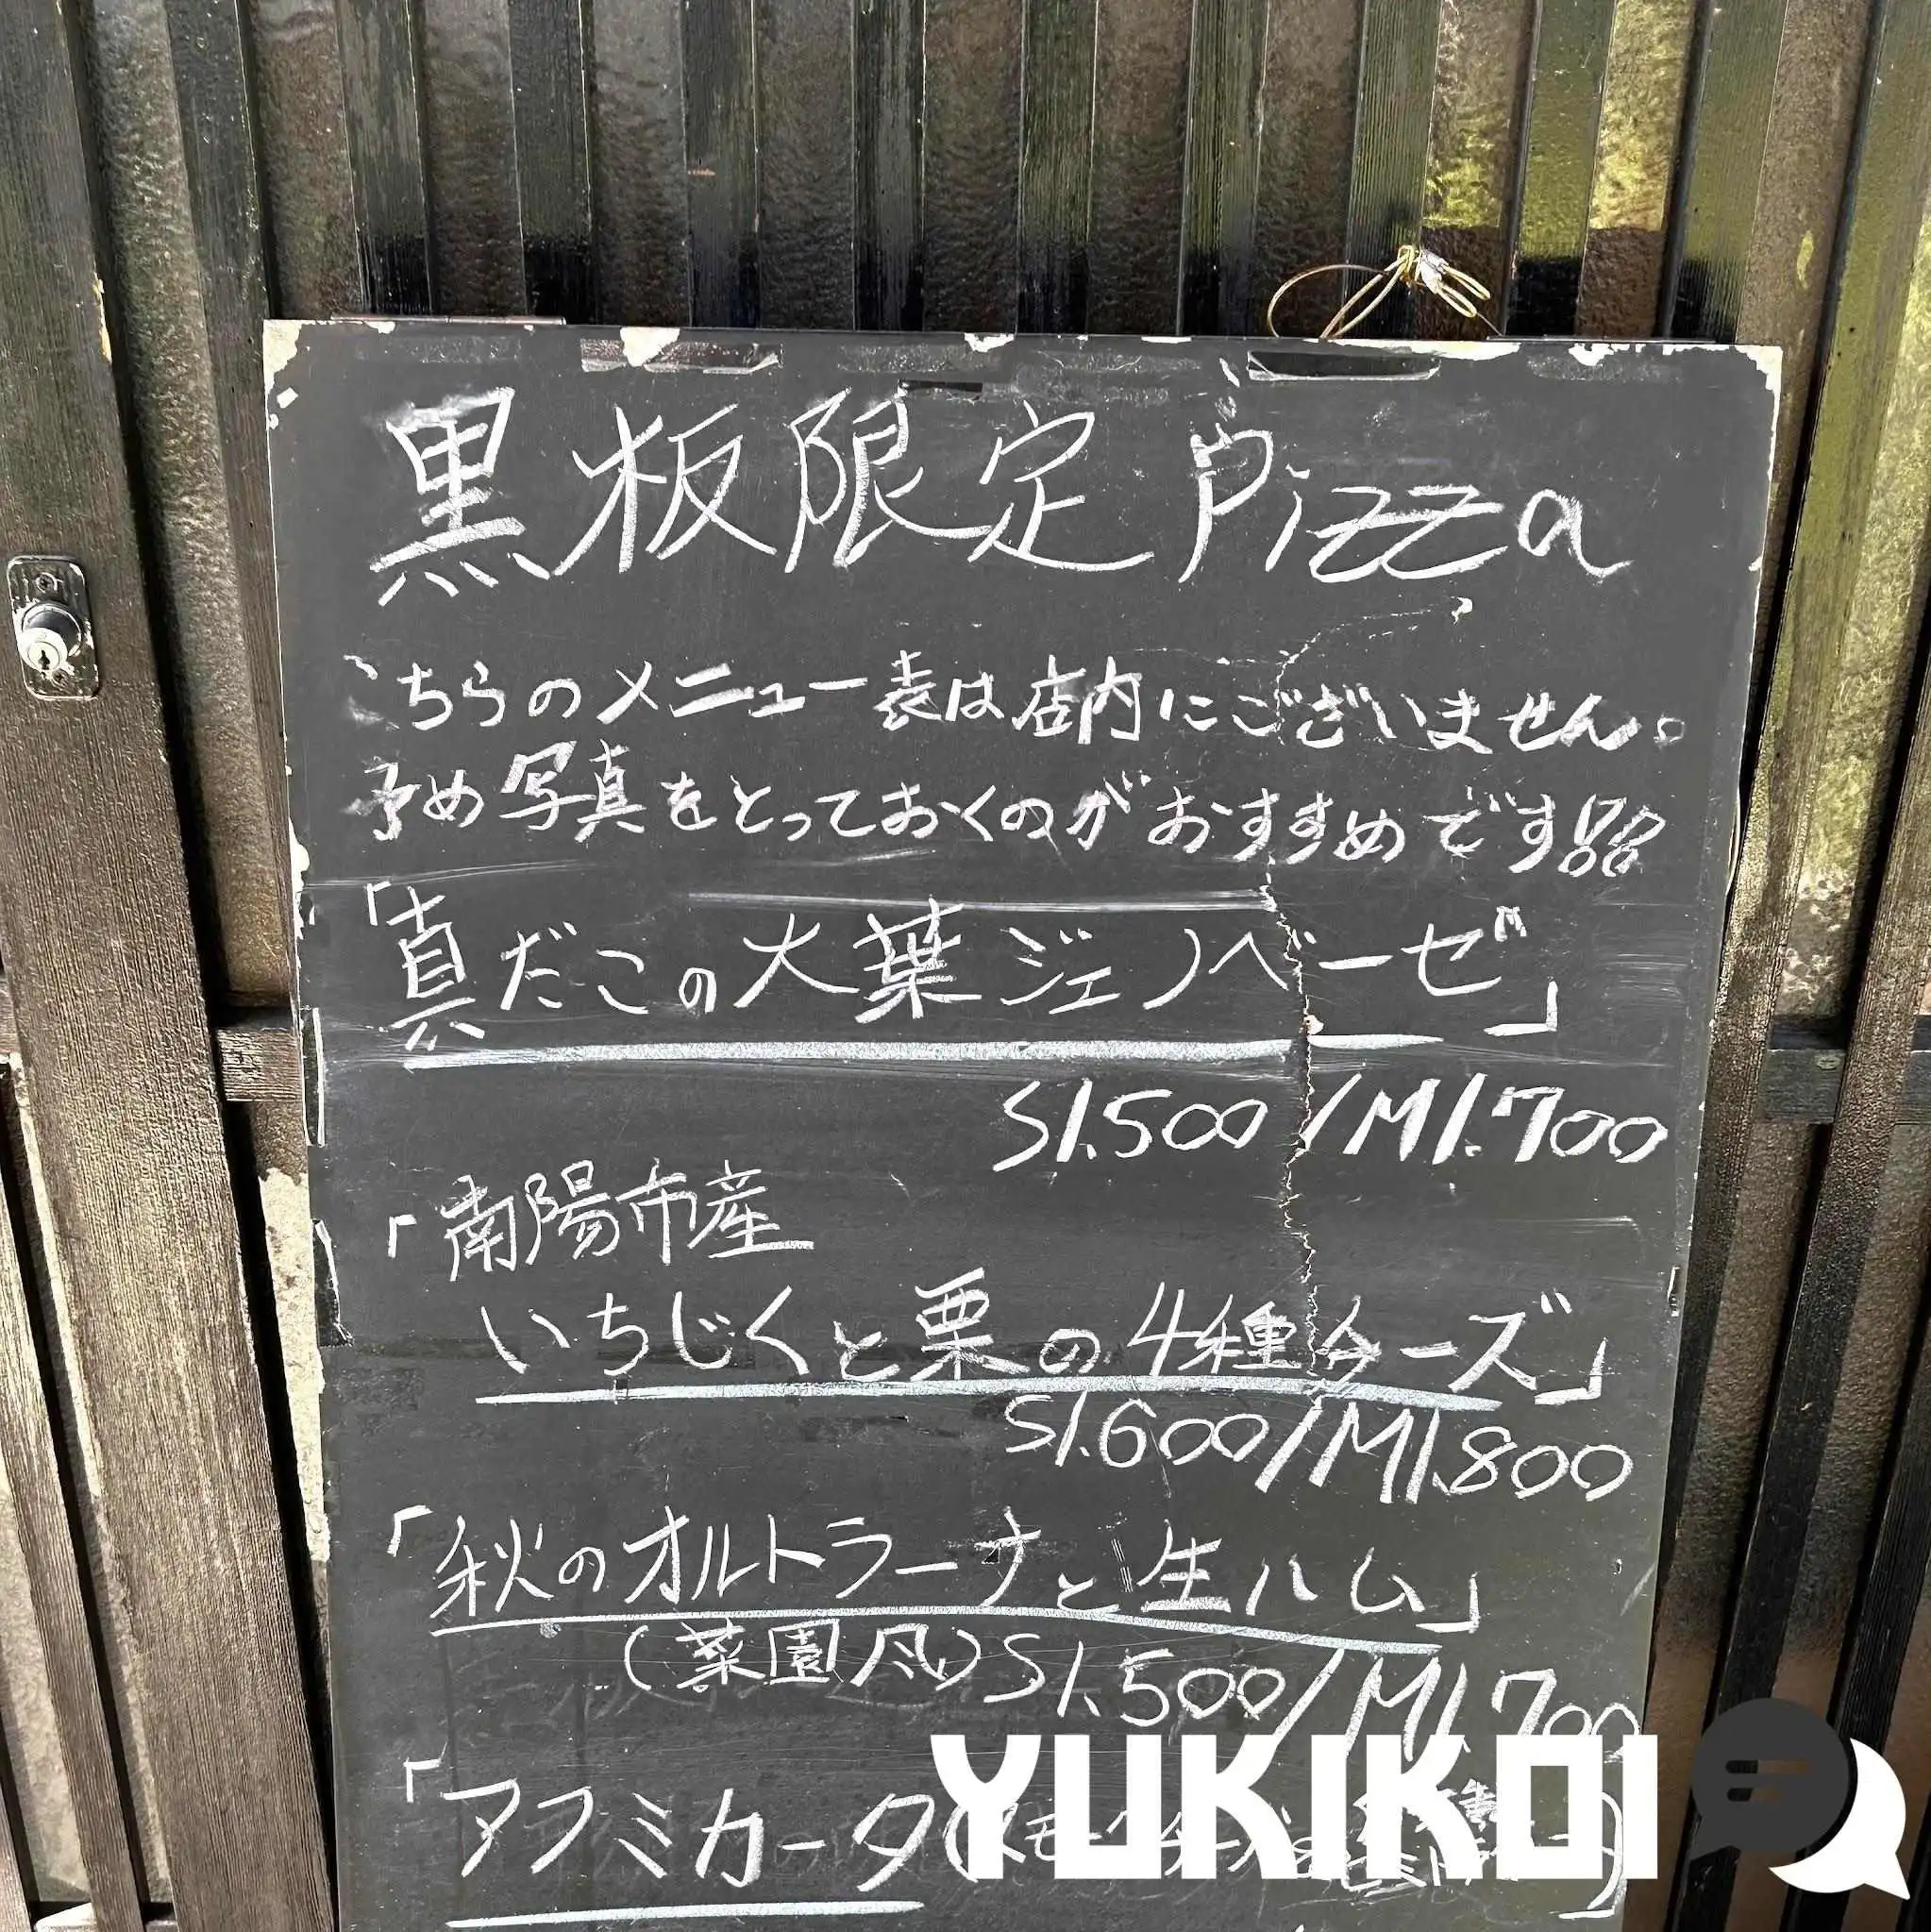 黒板限定 Pizza
こちらのメニュー表は店内にございません。
予め写真をとっておくのがおすすめです!!
「真だこの大葉ジェノベーゼ」
S1.500/M1.700
「南陽市産
いちじくと栗の4種チーズ」
S1.600/M1.800
「秋のオルトラーナと生ハム」
(菜園風)S1.500/M1.700
「アフミカータ
YUKIKOI